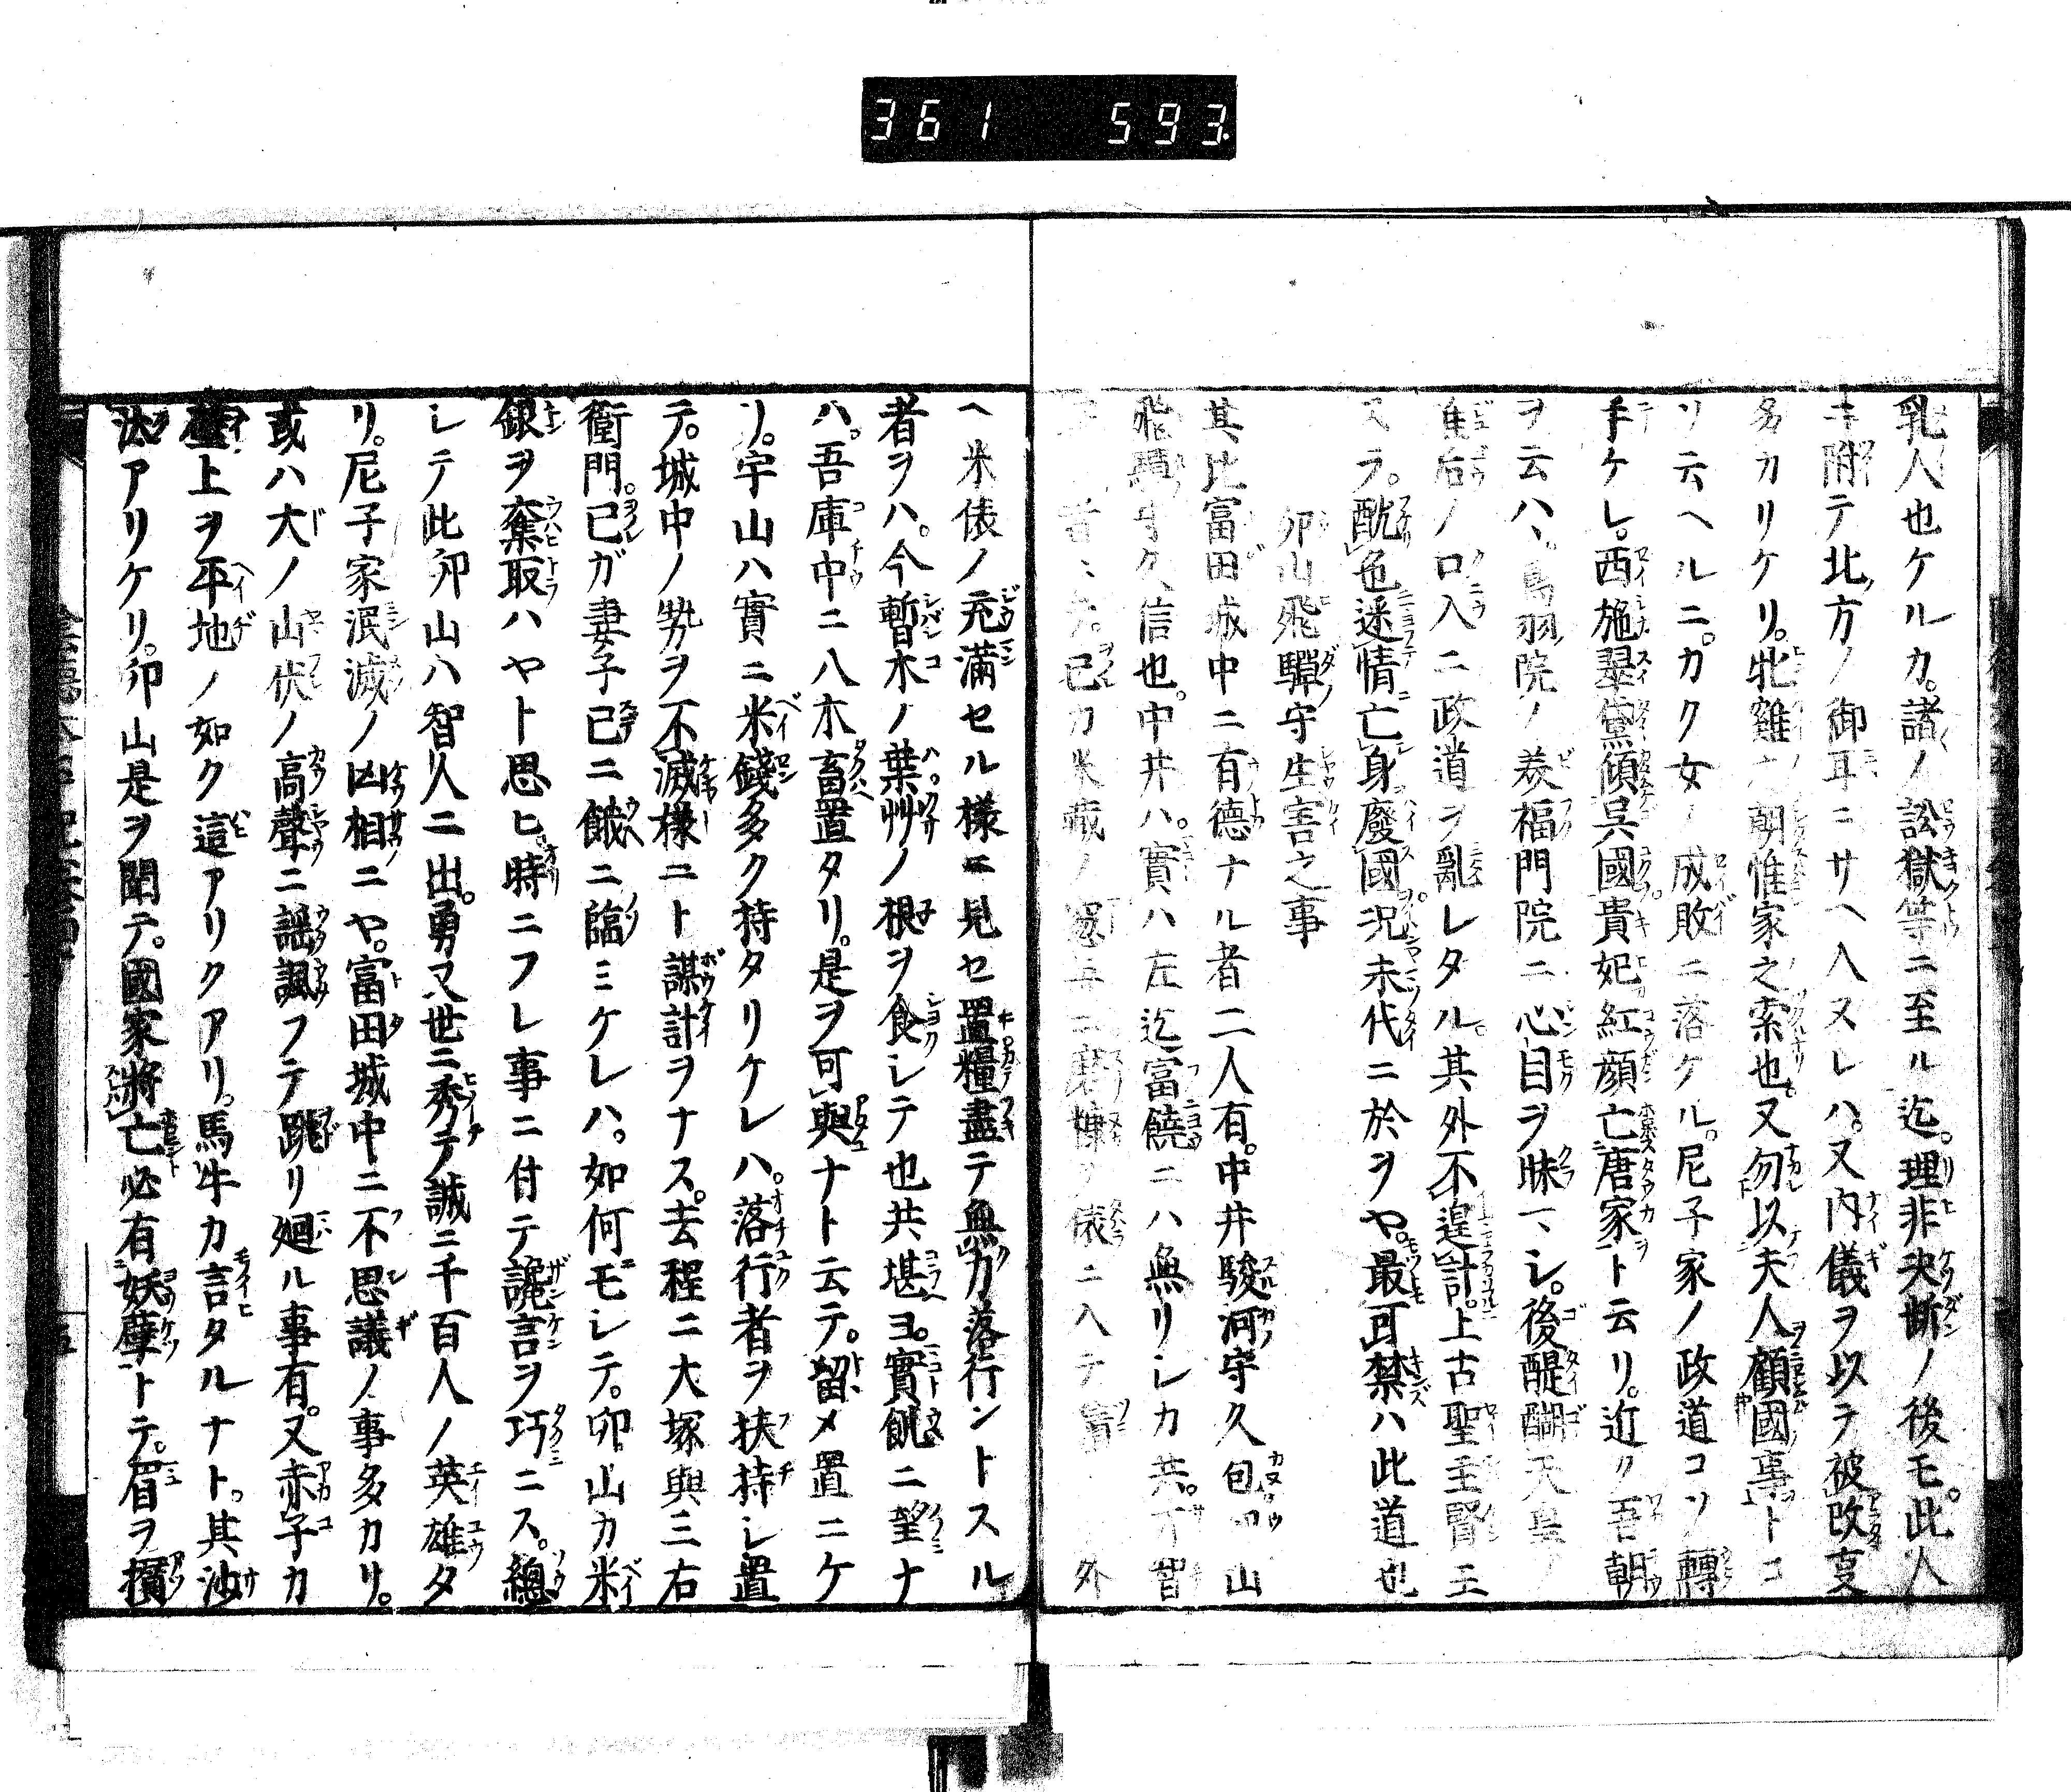 361 593
乳人也ケルカ。諸ノ訟獄等ニ至ル迄。理非決断ノ後モ。此人
ニ附テ北ノ方ノ御耳ニサヘ入ヌレハ。又内儀ヲ以テ被改変
多カリケリ。牝雞ニ朝惟家之索也。又勿以夫人顧國事トコ
ソ云ヘルニ。カク女ノ成敗ニ落ケル。尼子家ノ政道コソ轉
手ケレ。西施翠黛傾呉國貴妃紅顔亡唐家ト云リ。近ク吾朝
ヲ云ハヽ。鳥羽院ノ美福門院ニ心目ヲ昧マシ。後醍醐天皇ノ
准后ノ口入ニ政道ヲ亂レタル。其外不遑計。上古聖主賢王
スラ。酖色迷情亡身廢國況末代ニ於ヲヤ。最可禁ハ此道也
卯山飛驒守生害之事
其比富田城中ニ有德ナル者二人有。中井駿河守久包卯山
飛驒守久信也。中井ハ。實ハ左迄富饒ニハ無リシカ共。才智
己カ米藏ノ ニ磨糠ヲ俵ニ入テ 外
ヘ米俵ノ充満セル様ニ見セ置糧盡テ無力落行ントスル
者ヲハ。今暫木ノ葉艸ノ根ヲ食シテ也共堪ヨ。實飢ニ望ナ
ハ。吾庫中ニ八木畜置タリ。是ヲ可與ナト云テ。留メ置ニケ
リ。宇山ハ實ニ米錢多ク持タリケレハ。落行者ヲ扶持シ置
テ。城中ノ勢ヲ不減様ニト謀計ヲナス。去程ニ大塚與三右
衛門。己ガ妻子已ニ餓ニ臨ミケレハ。如何モシテ。卯山カ米
銀ヲ奪取ハヤト思ヒ。時ニフレ事ニ付テ讒言ヲ巧ニス。總
シテ此卯山ハ智人ニ出。勇又世ニ秀テ誠ニ千百人ノ英雄タ
リ。尼子家泯滅ノ凶相ニヤ。富田城中ニ不思議ノ事多カリ。
或ハ大ノ山伏ノ高聲ニ謡諷フテ跳リ廻ル事有。又赤子カ
壁上ヲ平地ノ如ク這アリクアリ。馬牛カ言タルナト。其沙
汰アリケリ。卯山是ヲ聞テ。國家將亡必有妖孽トテ。眉ヲ擯